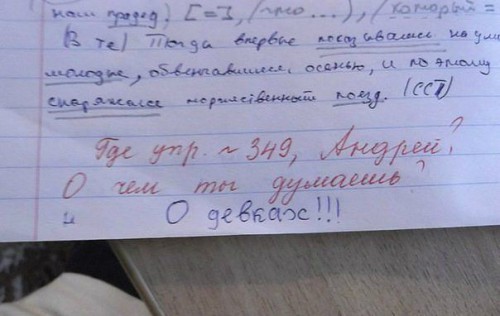 наш прадед, [=], (что...), (который =
(В те) Тогда впервые показывались на ули
молодые, обвенчавшиеся осенью, и поэтому
снаряжался торжественный поезд. (ССП)
Где упр. ~ 349, Андрей?
О чем ты думаешь?
О девках!!!